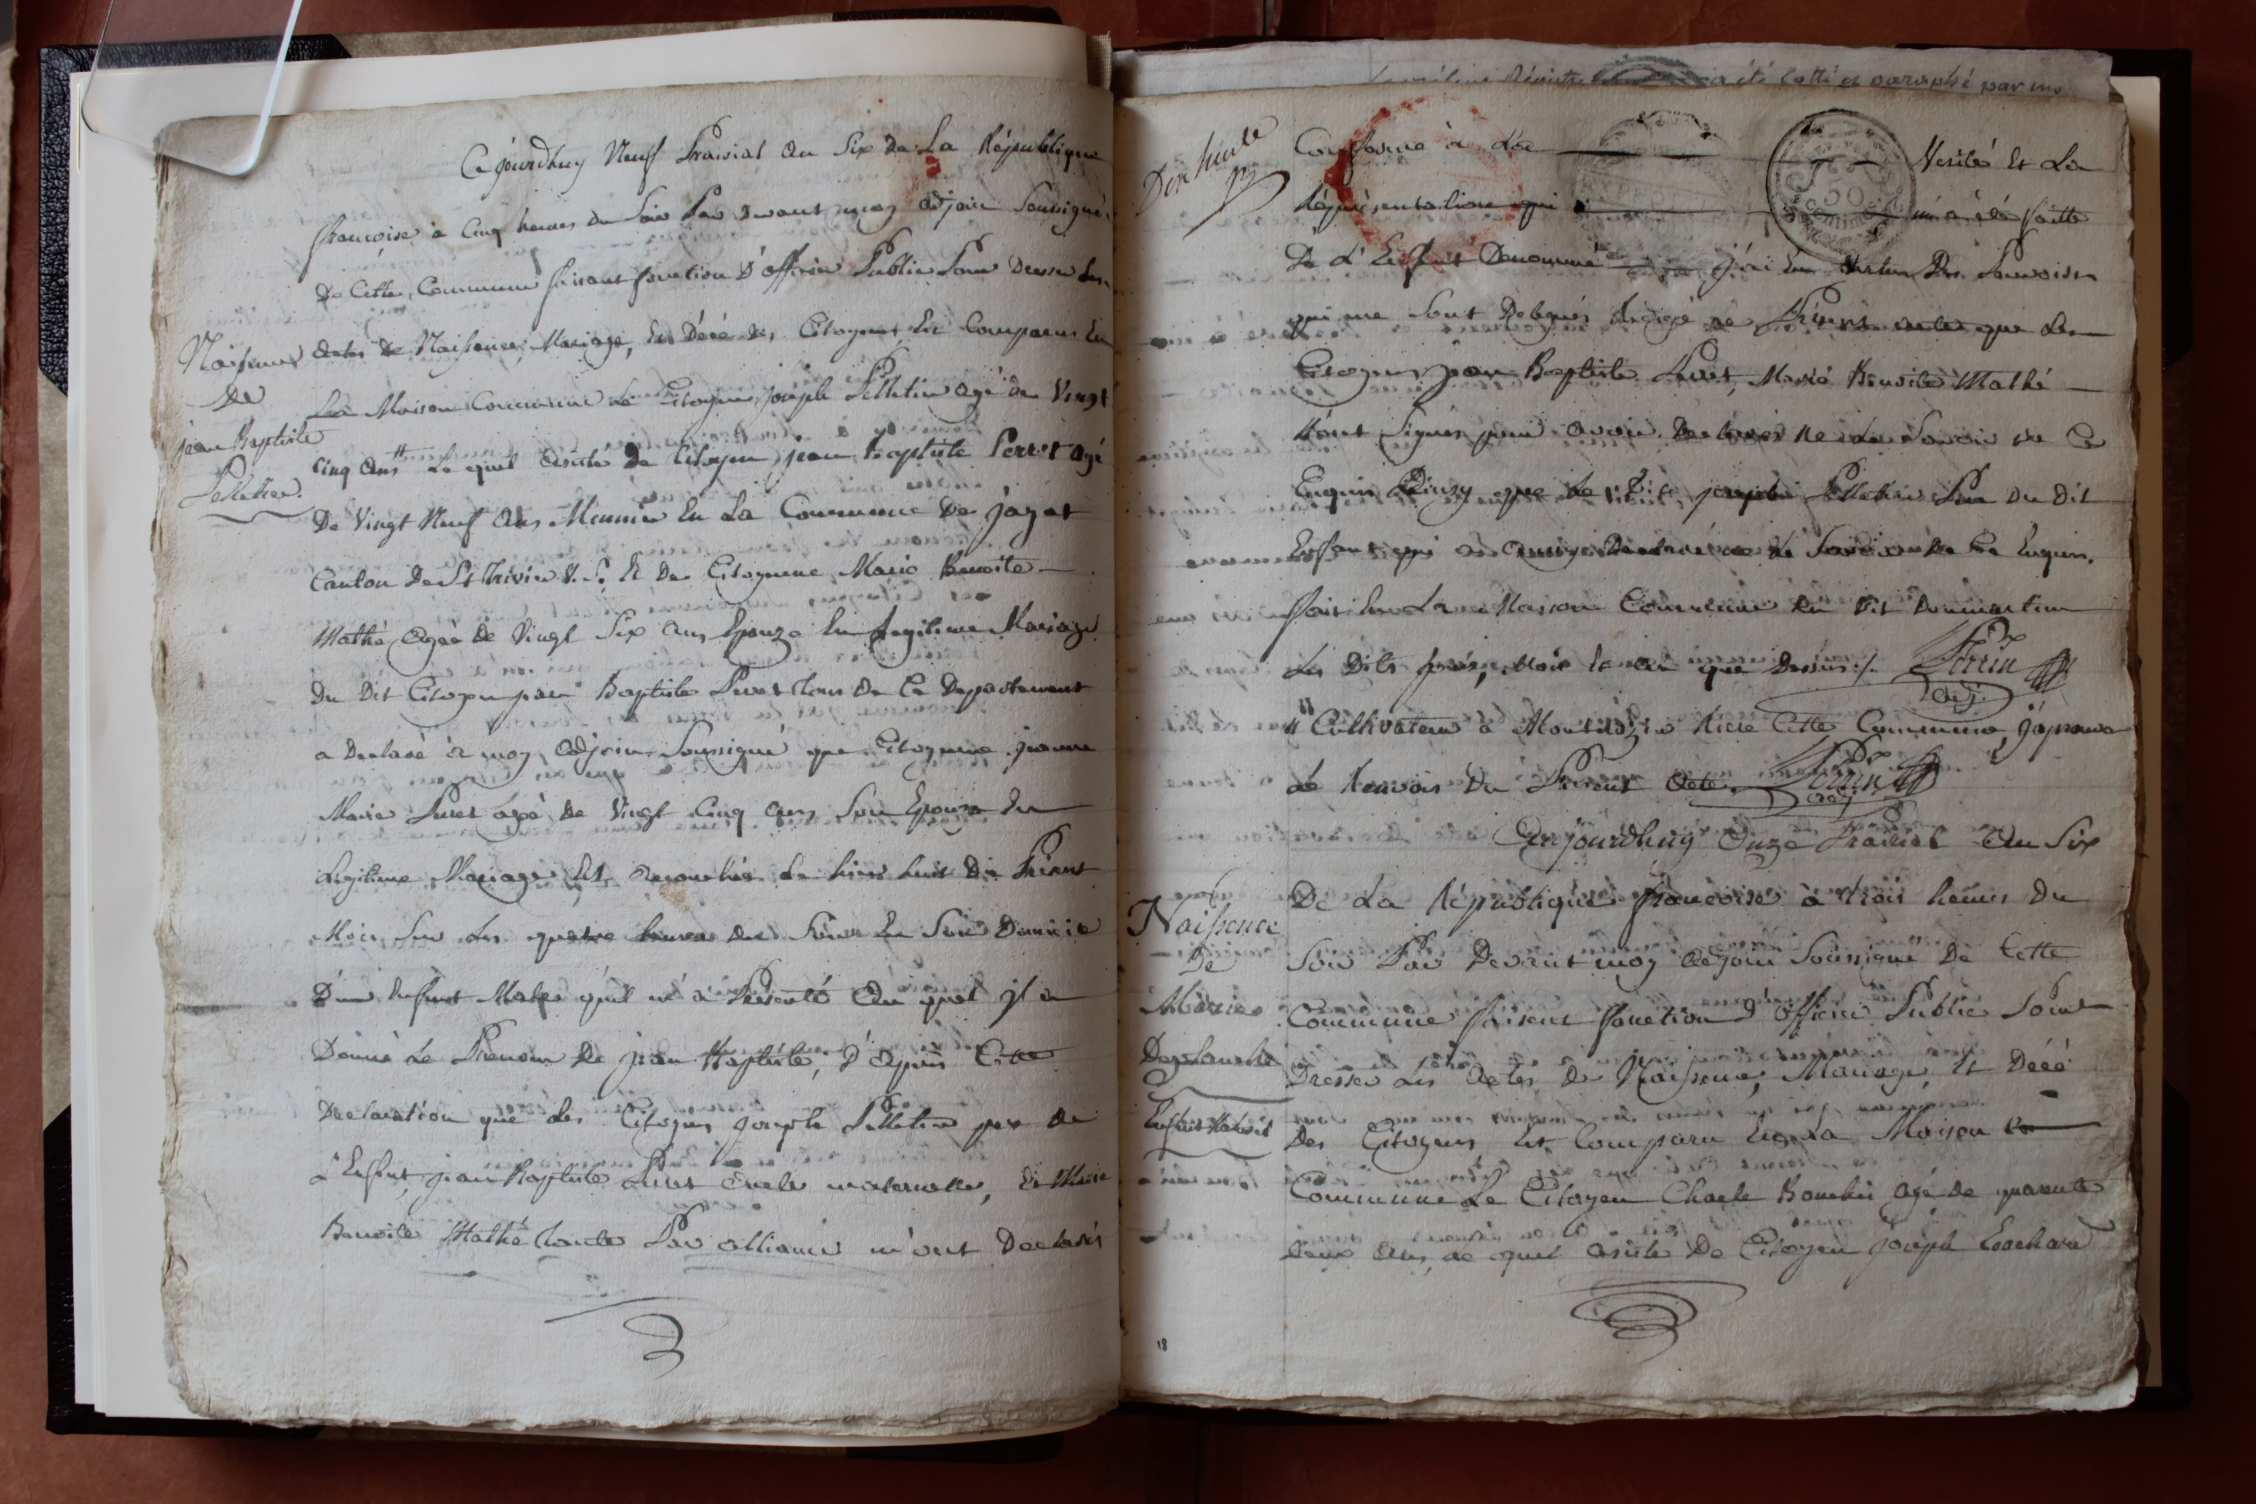 Ce jourdhuy Neuf Prairial an Six de La République
françoise à Cinq heures du Soir Par devant moy adjoin Soussigné
De Cette Commune faisant fonction D'officier Public Pour Dresser Les
actes De Naissance, Mariage, Et Décé des Citoyens Est Comparus En
La Maison Commune Le Citoyen joseph Pelletier agé de Vingt
cinq ans" Le quel assisté De Citoyen jean Baptiste Perret agé
De Vingt Neuf ans Meunier En La Commune De jayat
Canton De St Trivier Et De Citoyenne Marie Benoite
Mathé agée de Vingt Six ans Epouze En Legitime Mariage
Du Dit Citoyen jean Baptiste Perret tous De Ce Departement
a Declaré à moy adjoin Soussigné que Citoyenne jeanne
Marie Perret agée De Vingt Cinq ans Son Epouze En
Legitime Mariage Est accouchée Le hier huit Du Présent
Mois Sur Les quatre heures du Soir En Son Domicile
D'un Enfant Male qu'il m'a Présenté Au quel jl a
Donné Le Prenom De jean Baptiste, D'après Cette
Declaration que Les Citoyens joseph Pelletier per De
L'Enfant, jean Baptiste Perret Oncle maternelle, Et Marie
Benoite Mathé tante Par alliance m'ont Declarés
Naissance
De
jean Baptiste
Pelletier
Dix huite
Conforme à La Verité Et La
Représentation qui m'a été faitte
De L'Enfant Denommé j'ai En Vertu Des Pouvoirs
qui me Sont Delegués Redigé Le Présent acte que Les
Citoyens jean Baptiste Perret, Marie Benoite Mathé
N'ont Signés pour avoir Declarés Ne Le Savoir De Ce
Enquis Ainsy que Le Dit joseph Pelletier Pere Du Dit
Enfant qui a aussy Declaré Ne Le Savoir De Ce Enquis.
fait En La Maison Commune Du Dit Dommartin
Les Dits jour, Mois Et an que Dessus ./. Perrin
adj.
" Cultivateur à Riere Cette Commune, j'aprouve
Le Renvois Du Présent acte. Perrin
adj
Aujourdhuy Onze Prairial An Six
De La République françoise à trois heures Du
Soir Par Devant moy adjoin Soussigné De Cette
Commune faisent fonction D'officier Public Pour
Dresser Les Actes De Naissence, Mariage, Et Décé
Des Citoyens Est Comparu En La Maison
Commune Le Citoyen Charle Bouchis agé De quarante
Deux Ans, Le quel assisté De Citoyen joseph
Naissence
De
Marie
Enfant Naturel
18